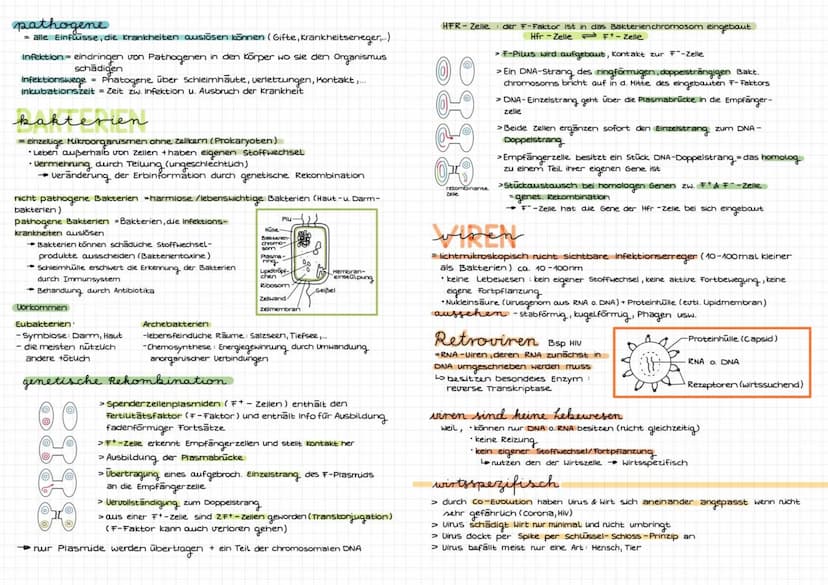 pathogene
= alle Einflüsse, die Krankheiten auslösen können (Gifte, Krankheitserreger,..)
Infektion = eindringen von Pathogenen in den Körper wo sie den Organismus
schädigen
Infektionswege = Phatogene über Schleimhäute, verletzungen, Kontakt,...
Inkubationszeit = Zeit zw. Infektion u. Ausbruch der Krankheit
BAKTERIEN
bakterien
= einzellige Mikroorganismen ohne Zellkern (Prokaryoten)
• Leben außerhalb von Zellen + haben eigenen Stoffwechsel
• Vermehrung durch Teilung (ungeschlechtlich)
→ Veränderung der Erbinformation durch genetische Rekombination
nicht pathogene Bakterien = harmlose / lebenswichtige Bakterien (Haut- u. Darm-
bakterien)
pathogene Bakterien = Bakterien, die Infektions-
krankheiten auslösen
→ Bakterien können schädliche Stoffwechsel-
produkte ausscheiden (Bakterientoxine)
→ Schleimhülle erschwert die Erkennung der Bakterien
durch Immunsystem
→ Behandlung durch Antibiotika
Pili
Hülle
Bakterien-
chromo-
som
Plasma-
ring
Lipidtröpf-
chen
Ribosom
Zellwand
Zellmembran
Membran-
einstülpung
Geißel
Vorkommen
Eubakterien:
- Symbiose: Darm, Haut
- die meisten nützlich
andere tötlich
Archebakterien
- lebensfeindliche Räume: Salzseen, Tiefsee,..
- Chemosynthese: Energiegewinnung durch Umwandlung
anorganischer Verbindungen
genetische Rekombination
> Spenderzellenplasmiden (F⁺ - Zellen) enthält den
Fertilitätsfaktor (F-Faktor) und enthält Info für Ausbildung
fadenförmiger Fortsätze
> F⁺-Zelle erkennt Empfängerzellen und stellt Kontakt her
> Ausbildung der Plasmabrücke
> Übertragung eines aufgebroch. Einzelstrang des F-Plasmids
an die Empfängerzelle
> Vervollständigung zum Doppelstrang
> aus einer F⁺-Zelle sind 2 F⁺-Zellen geworden (Transkonjugation)
(F-Faktor kann auch verloren gehen)
→ nur Plasmide werden übertragen + ein Teil der chromosomalen DNA
HFR-Zelle : der F-Faktor ist in das Bakterienchromosom eingebaut
Hfr-Zelle ⇌ F⁺-Zelle
> F-Pilus wird aufgebaut, Kontakt zur F⁻-Zelle
> Ein DNA-Strang des ringförmigen, doppelsträngigen Bakt.
chromosoms bricht auf in d. Mitte des eingebauten F-Faktors
> DNA-Einzelstrang geht über die Plasmabrücke in die Empfänger-
zelle
> Beide Zellen ergänzen sofort den Einzelstrang zum DNA-
Doppelstrang
> Empfängerzelle besitzt ein Stück DNA-Doppelstrang = das homolog
zu einem Teil ihrer eigenen Gene ist
rekombinante
Zelle
> Stückaustausch bei homologen Genen zw. F⁺ & F⁻-Zelle
= genet. Rekombination
→ F⁻-Zelle hat die Gene der Hfr-Zelle bei sich eingebaut
VIREN
viren
= lichtmikroskopisch nicht sichtbare Infektionserreger (10-100 mal kleiner
als Bakterien) ca. 10-100nm
• keine Lebewesen : kein eigener Stoffwechsel, keine aktive Fortbewegung, keine
eigene Fortpflanzung
• Nukleinsäure (Virusgenom aus RNA o. DNA) + Proteinhülle (evtl. Lipidmembran)
aussehen - stabförmig, kugelförmig, Phagen usw.
Retroviren Bsp HIV
= RNA-Viren, deren RNA zunächst in
DNA umgeschrieben werden muss
↳ besitzen besonderes Enzym :
reverse Transkriptase
Proteinhülle (Capsid)
RNA o. DNA
Rezeptoren (wirtssuchend)
viren sind keine Lebewesen
weil, • können nur DNA o. RNA besitzen (nicht gleichzeitig)
• keine Reizung
• kein eigener Stoffwechsel/Fortpflanzung
↳ nutzen den der Wirtszelle → Wirtspezifisch
wirtsspezifisch
> durch Co-Evolution haben Virus & Wirt sich aneinander angepasst wenn nicht
sehr gefährlich (Corona, HIV)
> Virus schädigt Wirt nur minimal und nicht umbringt
> Virus dockt per Spike per Schlüssel-Schloss-Prinzip an
> Virus befällt meist nur eine Art : Mensch, Tier